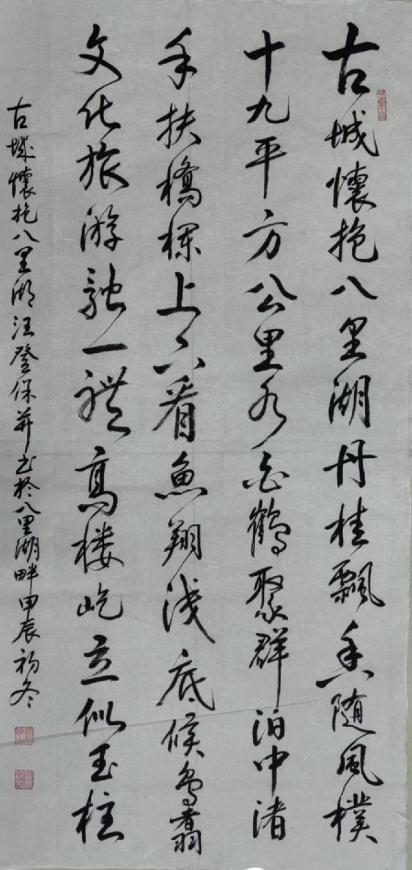 古城懷抱八里湖丹桂飄香随風樸
十九平方公里水白鶴聚群泊中渚
手扶橋欄上下看魚翔浅底候鳥翥
文化旅游融一體高楼屹立似玉柱
古城懷抱八里湖汪登保并书於八里湖畔甲辰初冬